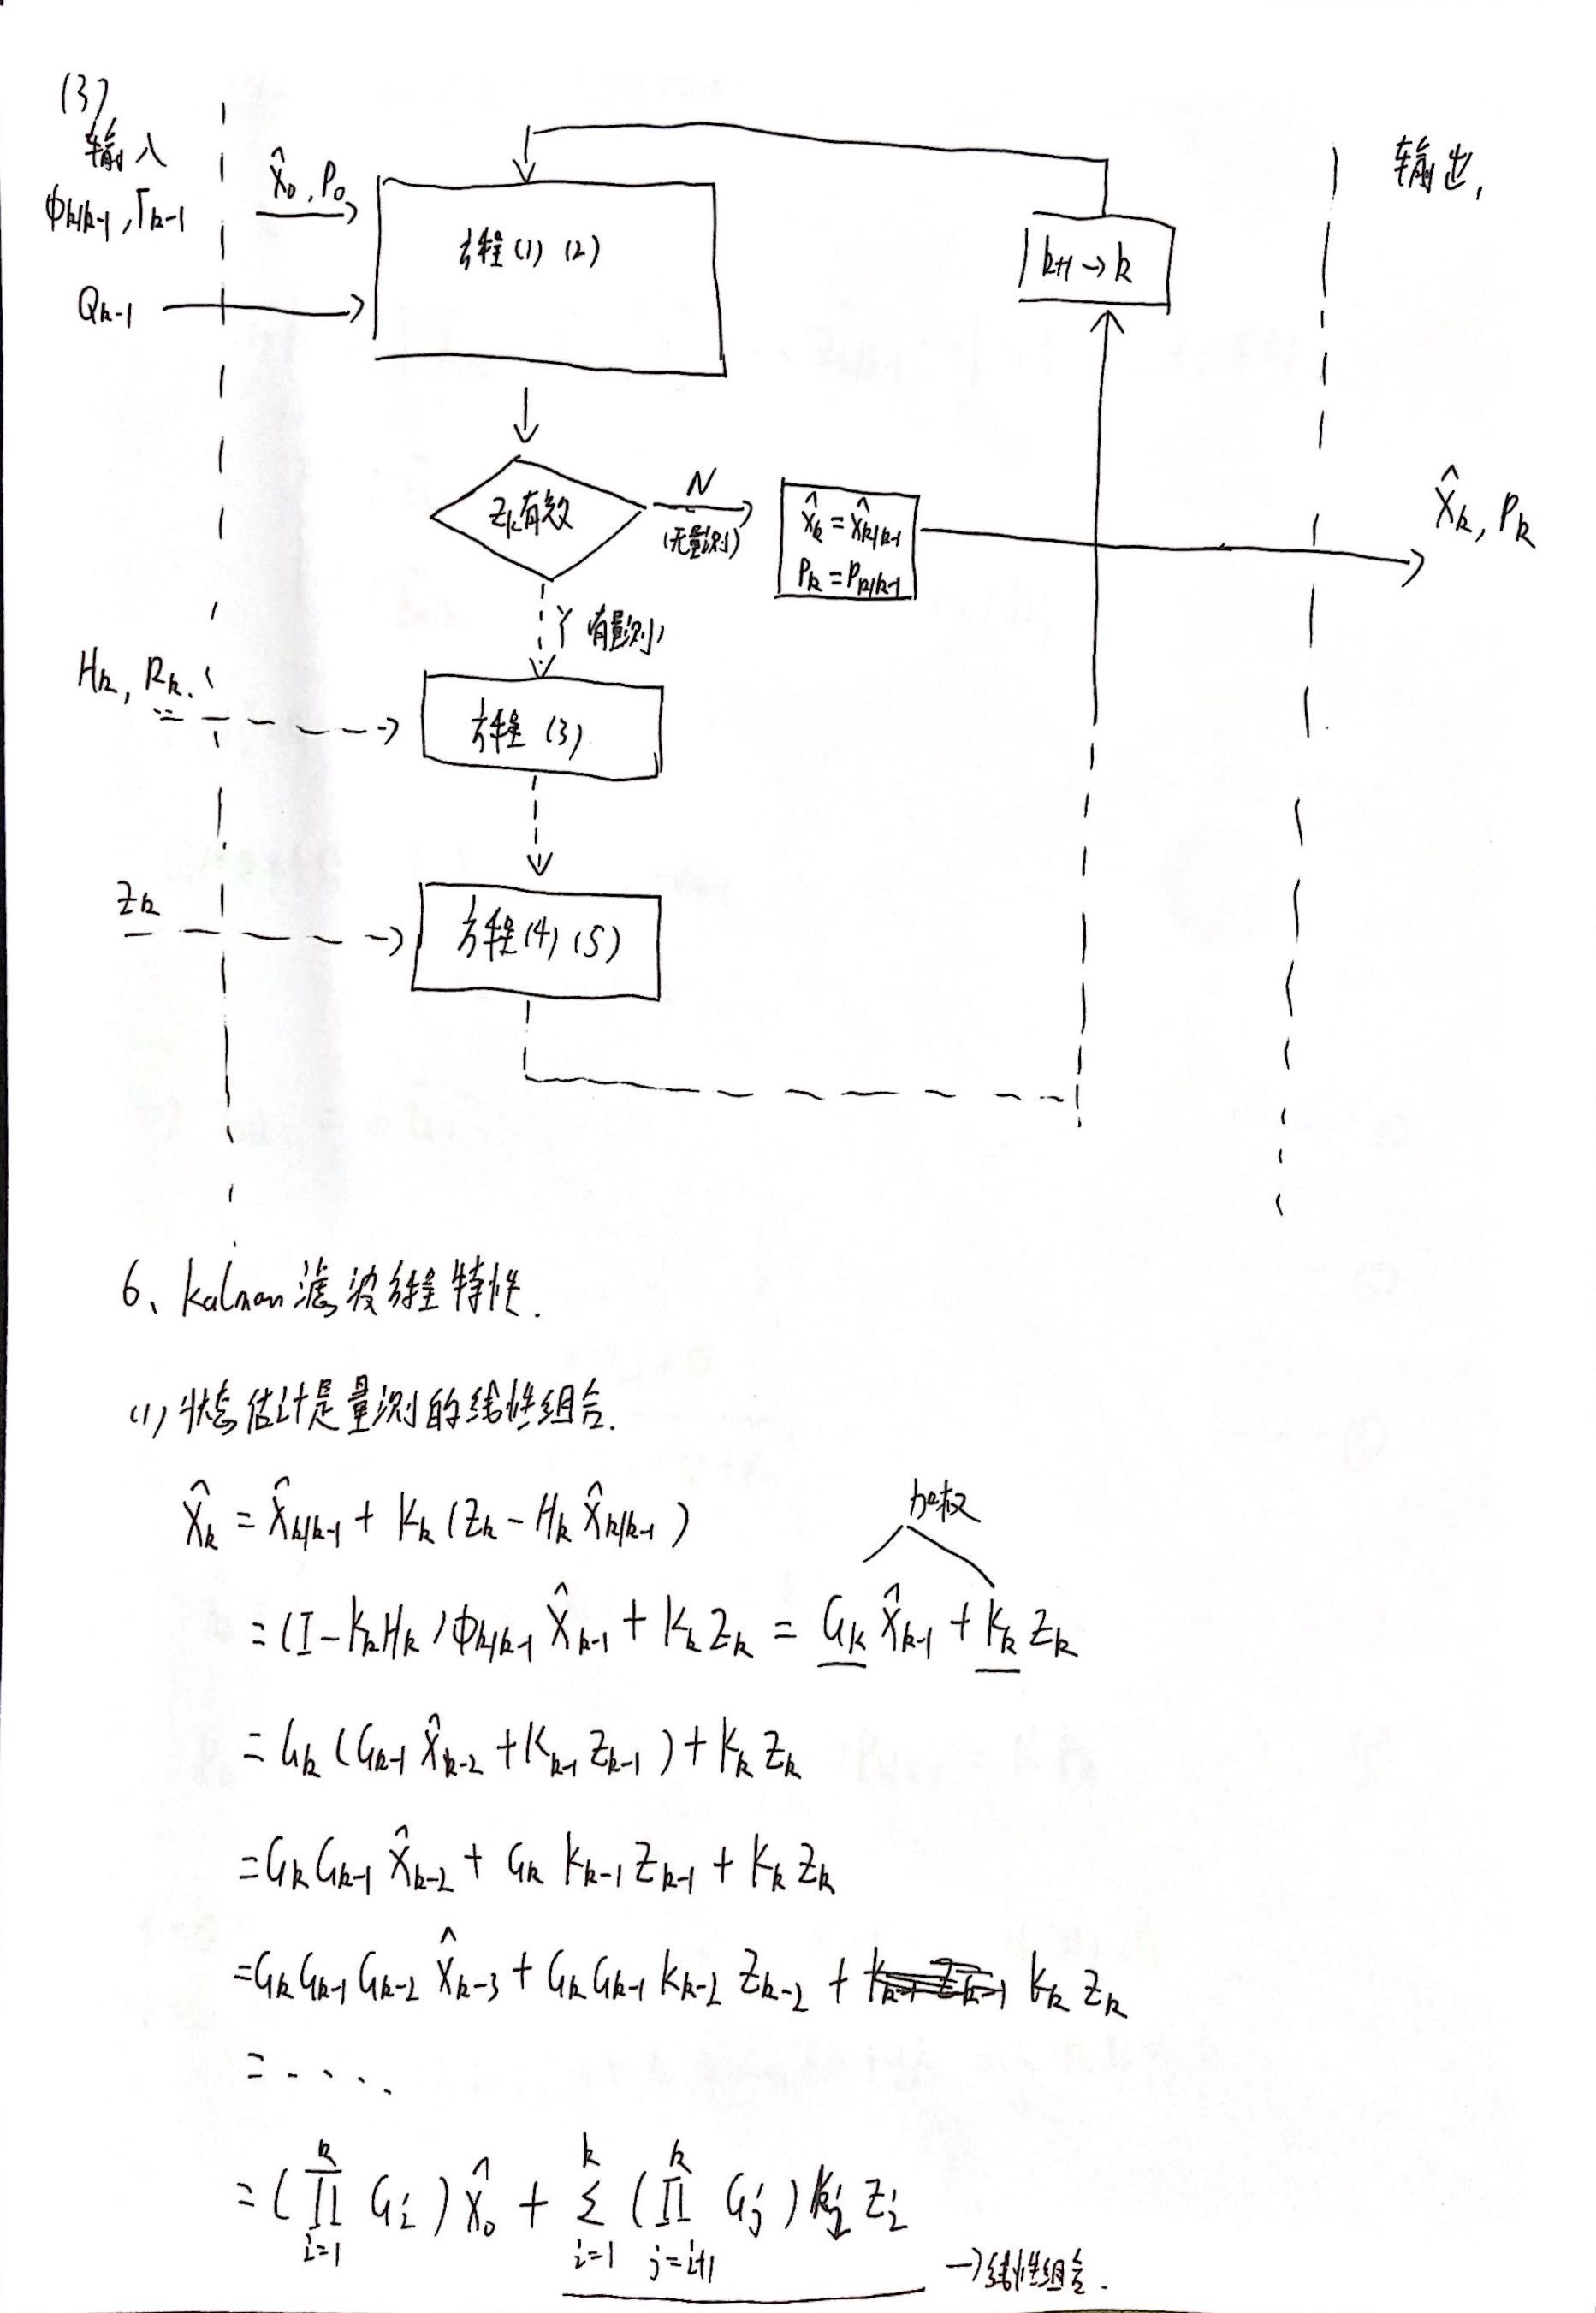 (3)
输入
输出,
Φk/k-1, Γk-1
X̂0, P0
方程(1) (2)
k+1→k
Qk-1
Zk有效
N
(无量测)
X̂k = X̂k/k-1
Pk = Pk/k-1
X̂k, Pk
Y 有量测
Hk, Rk.
方程 (3)
Zk
方程(4) (5)
6、Kalman滤波方程特性.
(1) 状态估计是量测的线性组合.
X̂k = X̂k/k-1 + Kk (Zk - Hk X̂k/k-1)
加权
= (I - KkHk) Φk/k-1 X̂k-1 + Kk Zk = Gk X̂k-1 + Kk Zk
= Gk (Gk-1 X̂k-2 + Kk-1 Zk-1) + Kk Zk
= Gk Gk-1 X̂k-2 + Gk Kk-1 Zk-1 + Kk Zk
= Gk Gk-1 Gk-2 X̂k-3 + Gk Gk-1 Kk-2 Zk-2 + Kk Zk
= ....
= (∏_{i=1}^{k} Gi) X̂0 + ∑_{i=1}^{k} (∏_{j=i+1}^{k} Gj) Ki Zi
→线性组合.